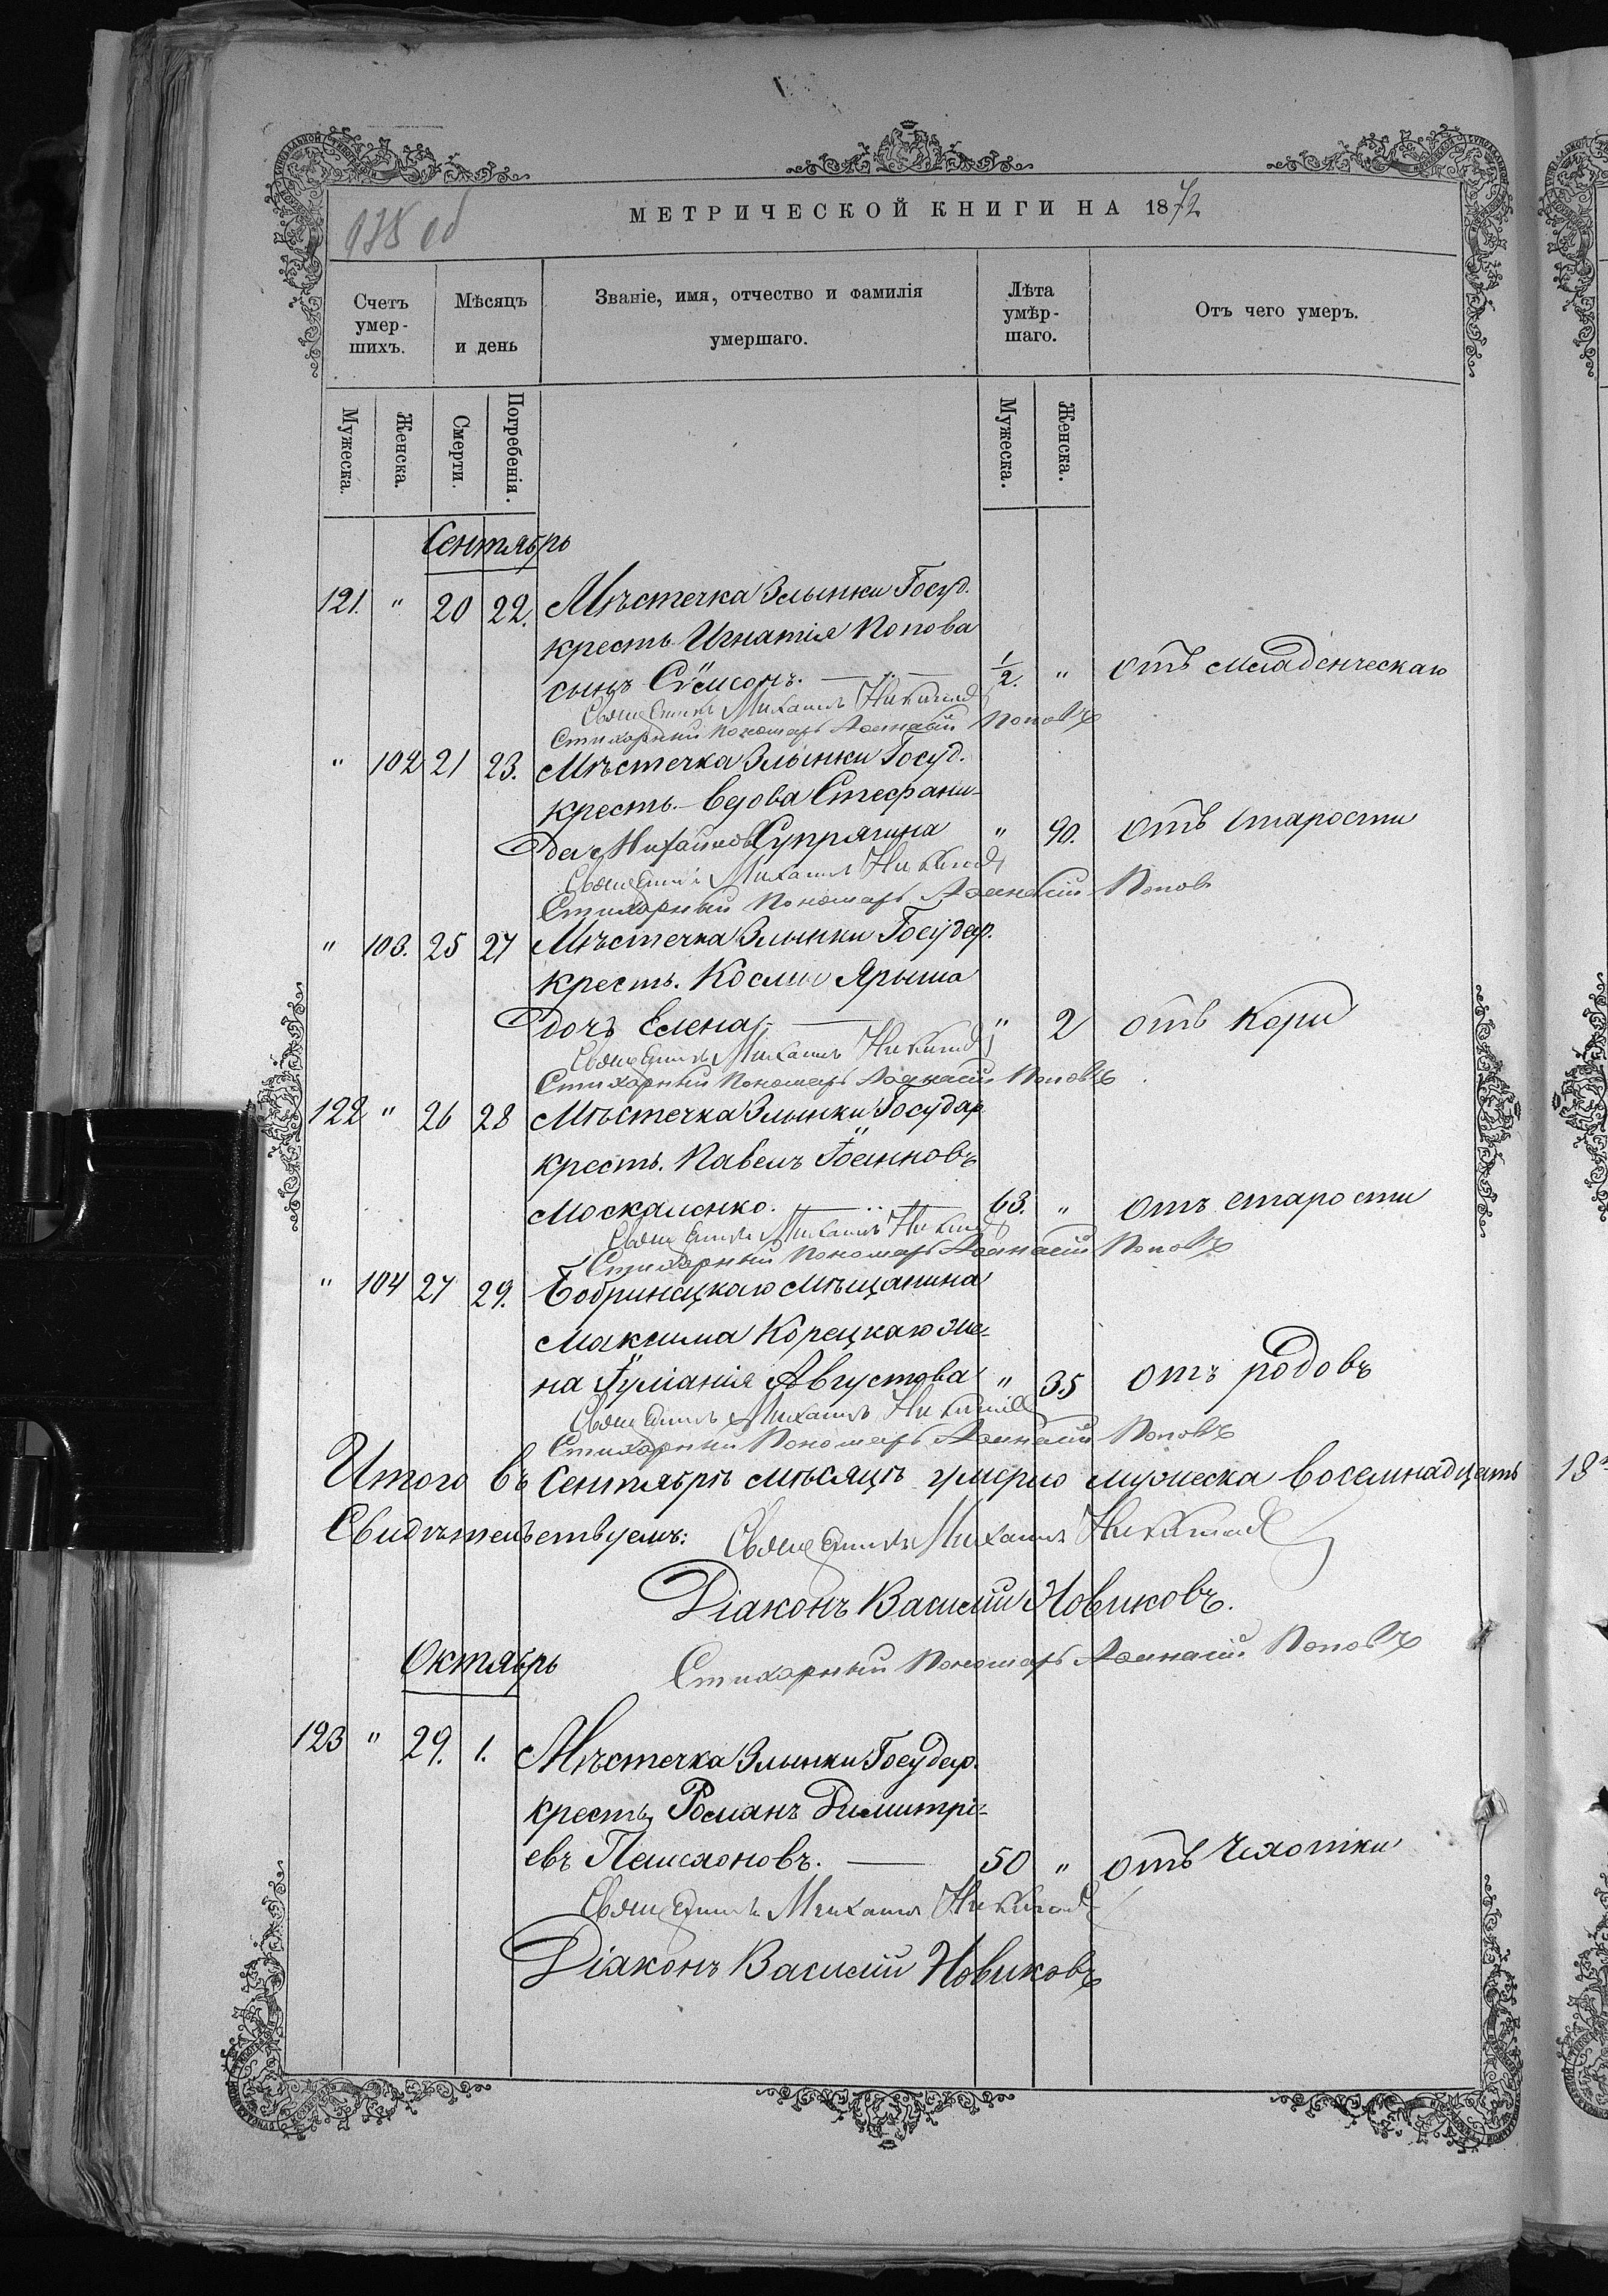 МЕТРИЧЕСКОЙ КНИГИ НА 1872
Счетъ умер-шихъ.
Мѣсяцъ и день
Званіе, имя, отчество и фамилія умершаго.
Лѣта умѣр-шаго.
Отъ чего умеръ.
Мужеска. Женска. Смерти. Погребенія. Мужеска. Женска.
Сентябрь
121. " 20 22. Мѣстечка Злынки Госуд.
кресть Игнатія Попова
сынъ Сѵмеонъ. 1/2. " отъ младенческаго
Священникъ Михаилъ
Стихарный Пономарь Аѳанасій Поповъ
" 102 21 23. Мѣстечка Злынки Госуд.
кресть. вдова Стефани-
да Супрягина " 90. отъ старости
Священникъ Михаилъ
Стихарный Пономарь Аѳанасій Поповъ
" 103. 25 27 Мѣстечка Злынки Государ.
кресть. Космы Ярыша
дочъ Елена " 2 отъ кори
Священникъ Михаилъ
Стихарный Пономарь Аѳанасій Поповъ
122 " 26 28 Мѣстечка Злынки Государ
кресть. Павелъ Іоанновъ
Москаленко. 63. " отъ старости
Священникъ Михаилъ
Стихарный Пономарь Аѳанасій Поповъ
" 104 27 29. Бобринецкаго мѣщанина
Максима Корецкаго же-
на Іуліанія Августова " 35 отъ родовъ
Священникъ Михаилъ
Стихарный Пономарь Аѳанасій Поповъ
Итого въ Сентябрѣ мѣсяцѣ умерло мужеска восемнадцать 18
Свидѣтельствуемъ: Священникъ Михаилъ
Діаконъ Василій Новиковъ.
Стихарный Пономарь Аѳанасій Поповъ
Октябрь
123 " 29. 1. Мѣстечка Злынки Государ.
кресть. Романъ Димитрі-
евъ 50 " отъ Чахотки
Священникъ Михаилъ
Діаконъ Василій Новиковъ